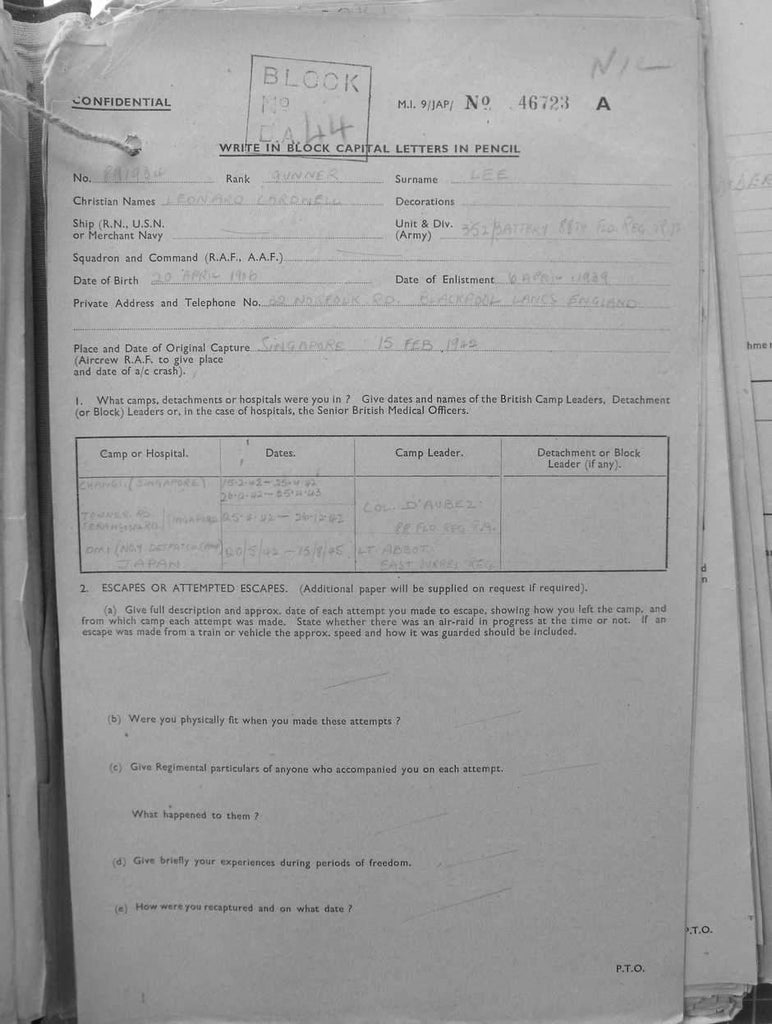 NIL
CONFIDENTIAL
BLOCK
No
C.A 44
M.I. 9/JAP/ No 46723 A
WRITE IN BLOCK CAPITAL LETTERS IN PENCIL
No. Rank GUNNER Surname LEE
Christian Names LEONARD CARDWELL Decorations
Ship (R.N., U.S.N. Unit & Div. 352/BATTERY 88TH FLD. REG. R.A.
or Merchant Navy (Army)
Squadron and Command (R.A.F., A.A.F.)
Date of Birth 20 APRIL Date of Enlistment 6 APRIL 1939
Private Address and Telephone No. 32 NORFOLK RD. BLACKPOOL LANCS ENGLAND
Place and Date of Original Capture SINGAPORE 15 FEB 1942
(Aircrew R.A.F. to give place
and date of a/c crash).
1. What camps, detachments or hospitals were you in ? Give dates and names of the British Camp Leaders, Detachment
(or Block) Leaders or, in the case of hospitals, the Senior British Medical Officers.
Camp or Hospital. Dates. Camp Leader. Detachment or Block
Leader (if any).
CHANGI (SINGAPORE) 15-2-42 -
COL. D'AUBEZ
TOWNER RD. (SINGAPORE)
88 FLD REG R.A.
JAPAN - 15/8/45 LT ABBOT
EAST SURREY REG
2. ESCAPES OR ATTEMPTED ESCAPES. (Additional paper will be supplied on request if required).
(a) Give full description and approx. date of each attempt you made to escape, showing how you left the camp, and
from which camp each attempt was made. State whether there was an air-raid in progress at the time or not. If an
escape was made from a train or vehicle the approx. speed and how it was guarded should be included.
(b) Were you physically fit when you made these attempts ?
(c) Give Regimental particulars of anyone who accompanied you on each attempt.
What happened to them ?
(d) Give briefly your experiences during periods of freedom.
(e) How were you recaptured and on what date ?
P.T.O.
P.T.O.